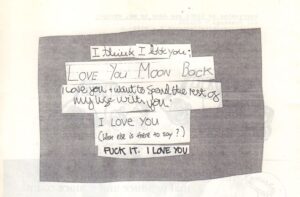 I think I love you.
LOVE YOU MOON BACK
I love you + want to spend the rest of
my life with you.
I LOVE YOU
(What else is there to say?)
FUCK IT. I LOVE YOU